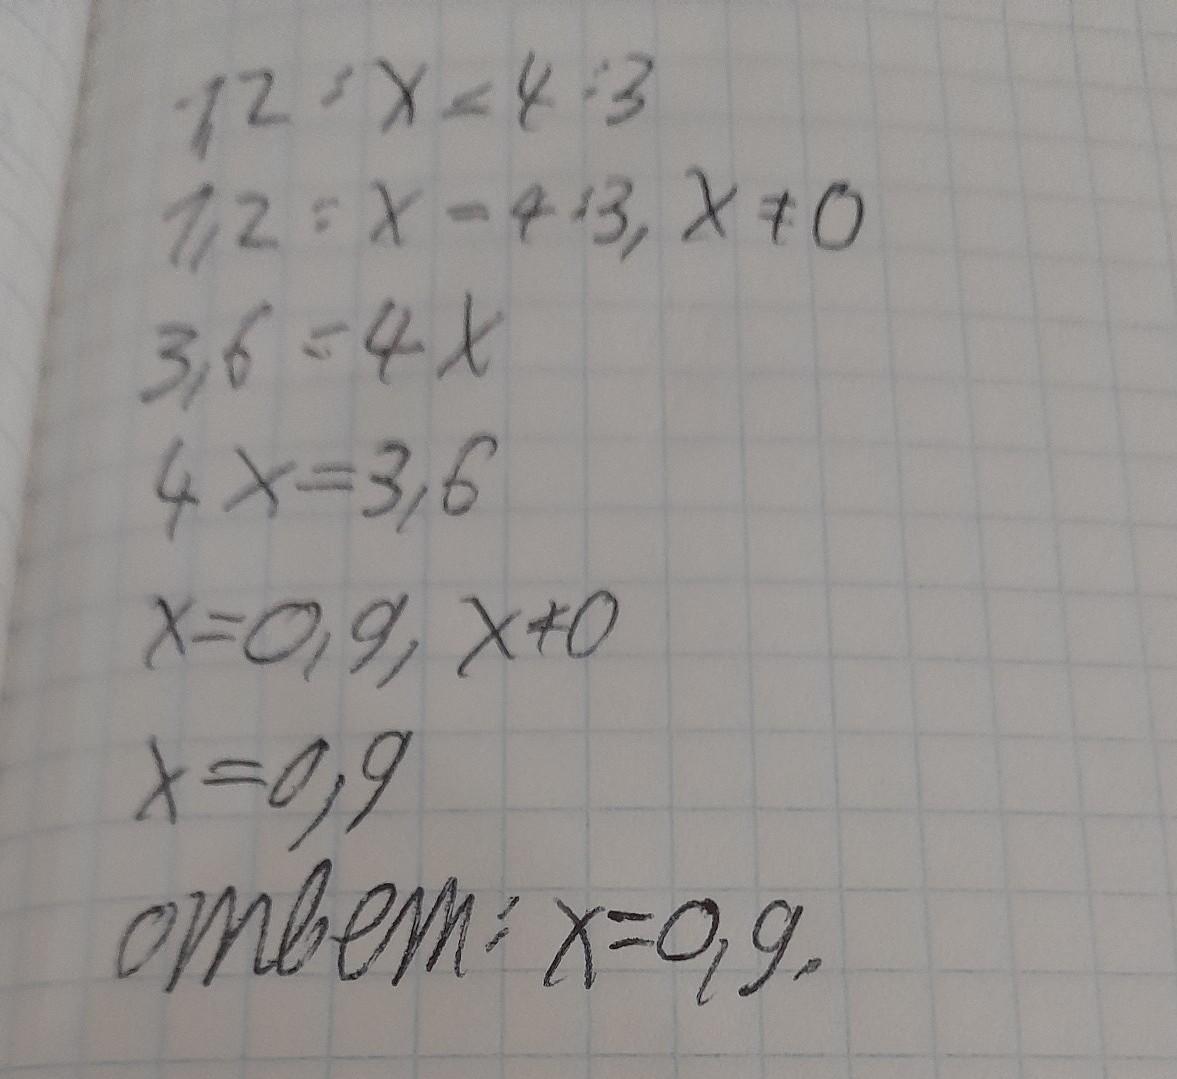 1,2 : x = 4 : 3
1,2 : x = 4 : 3, x ≠ 0
3,6 = 4x
4x = 3,6
x = 0,9, x ≠ 0
x = 0,9
ответ: x = 0,9.